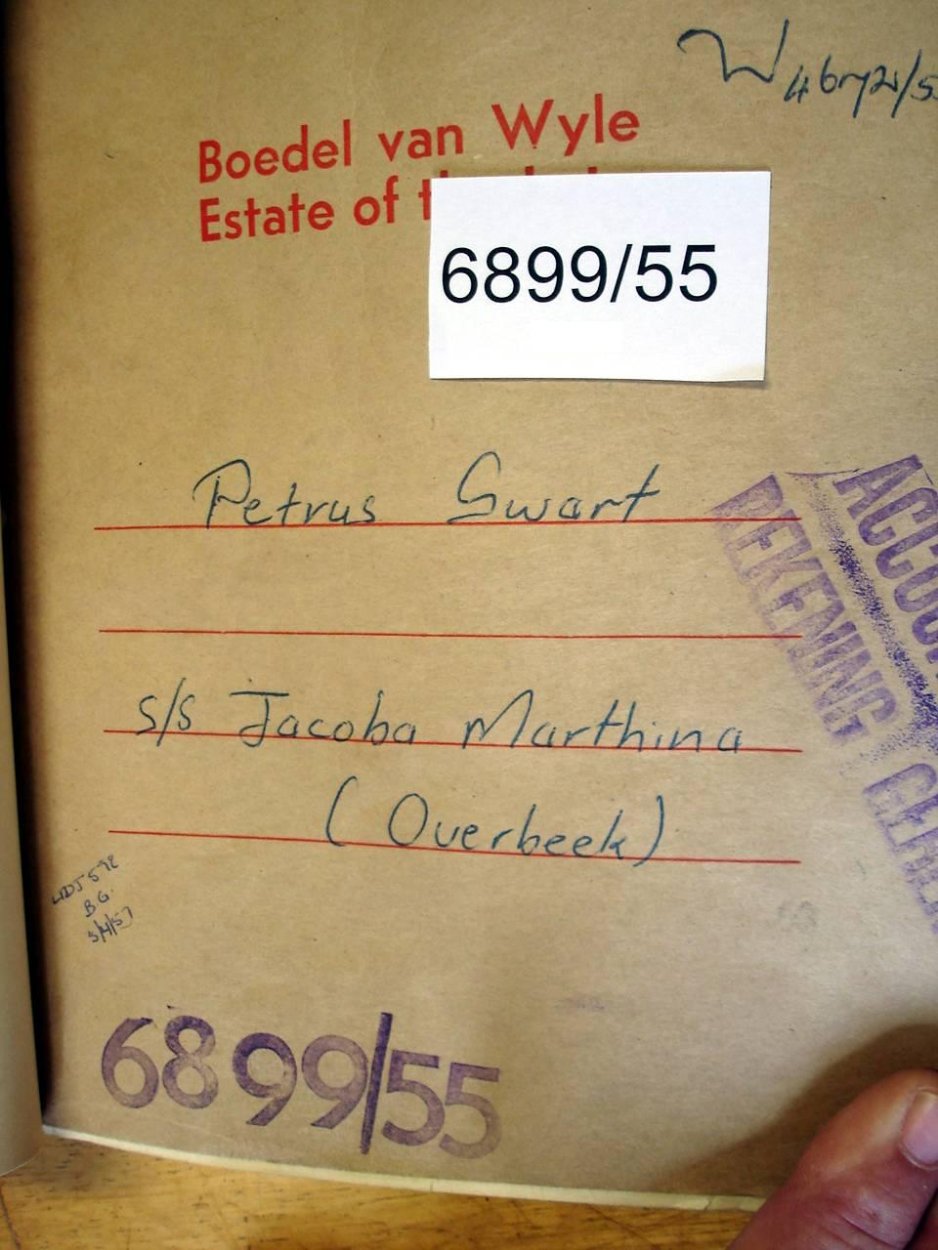 W 4671/5
Boedel van Wyle
Estate of
6899/55
Petrus Swart
s/s Jacoba Marthina
(Overbeek)
REKENING
BG
3/4/57
6899/55